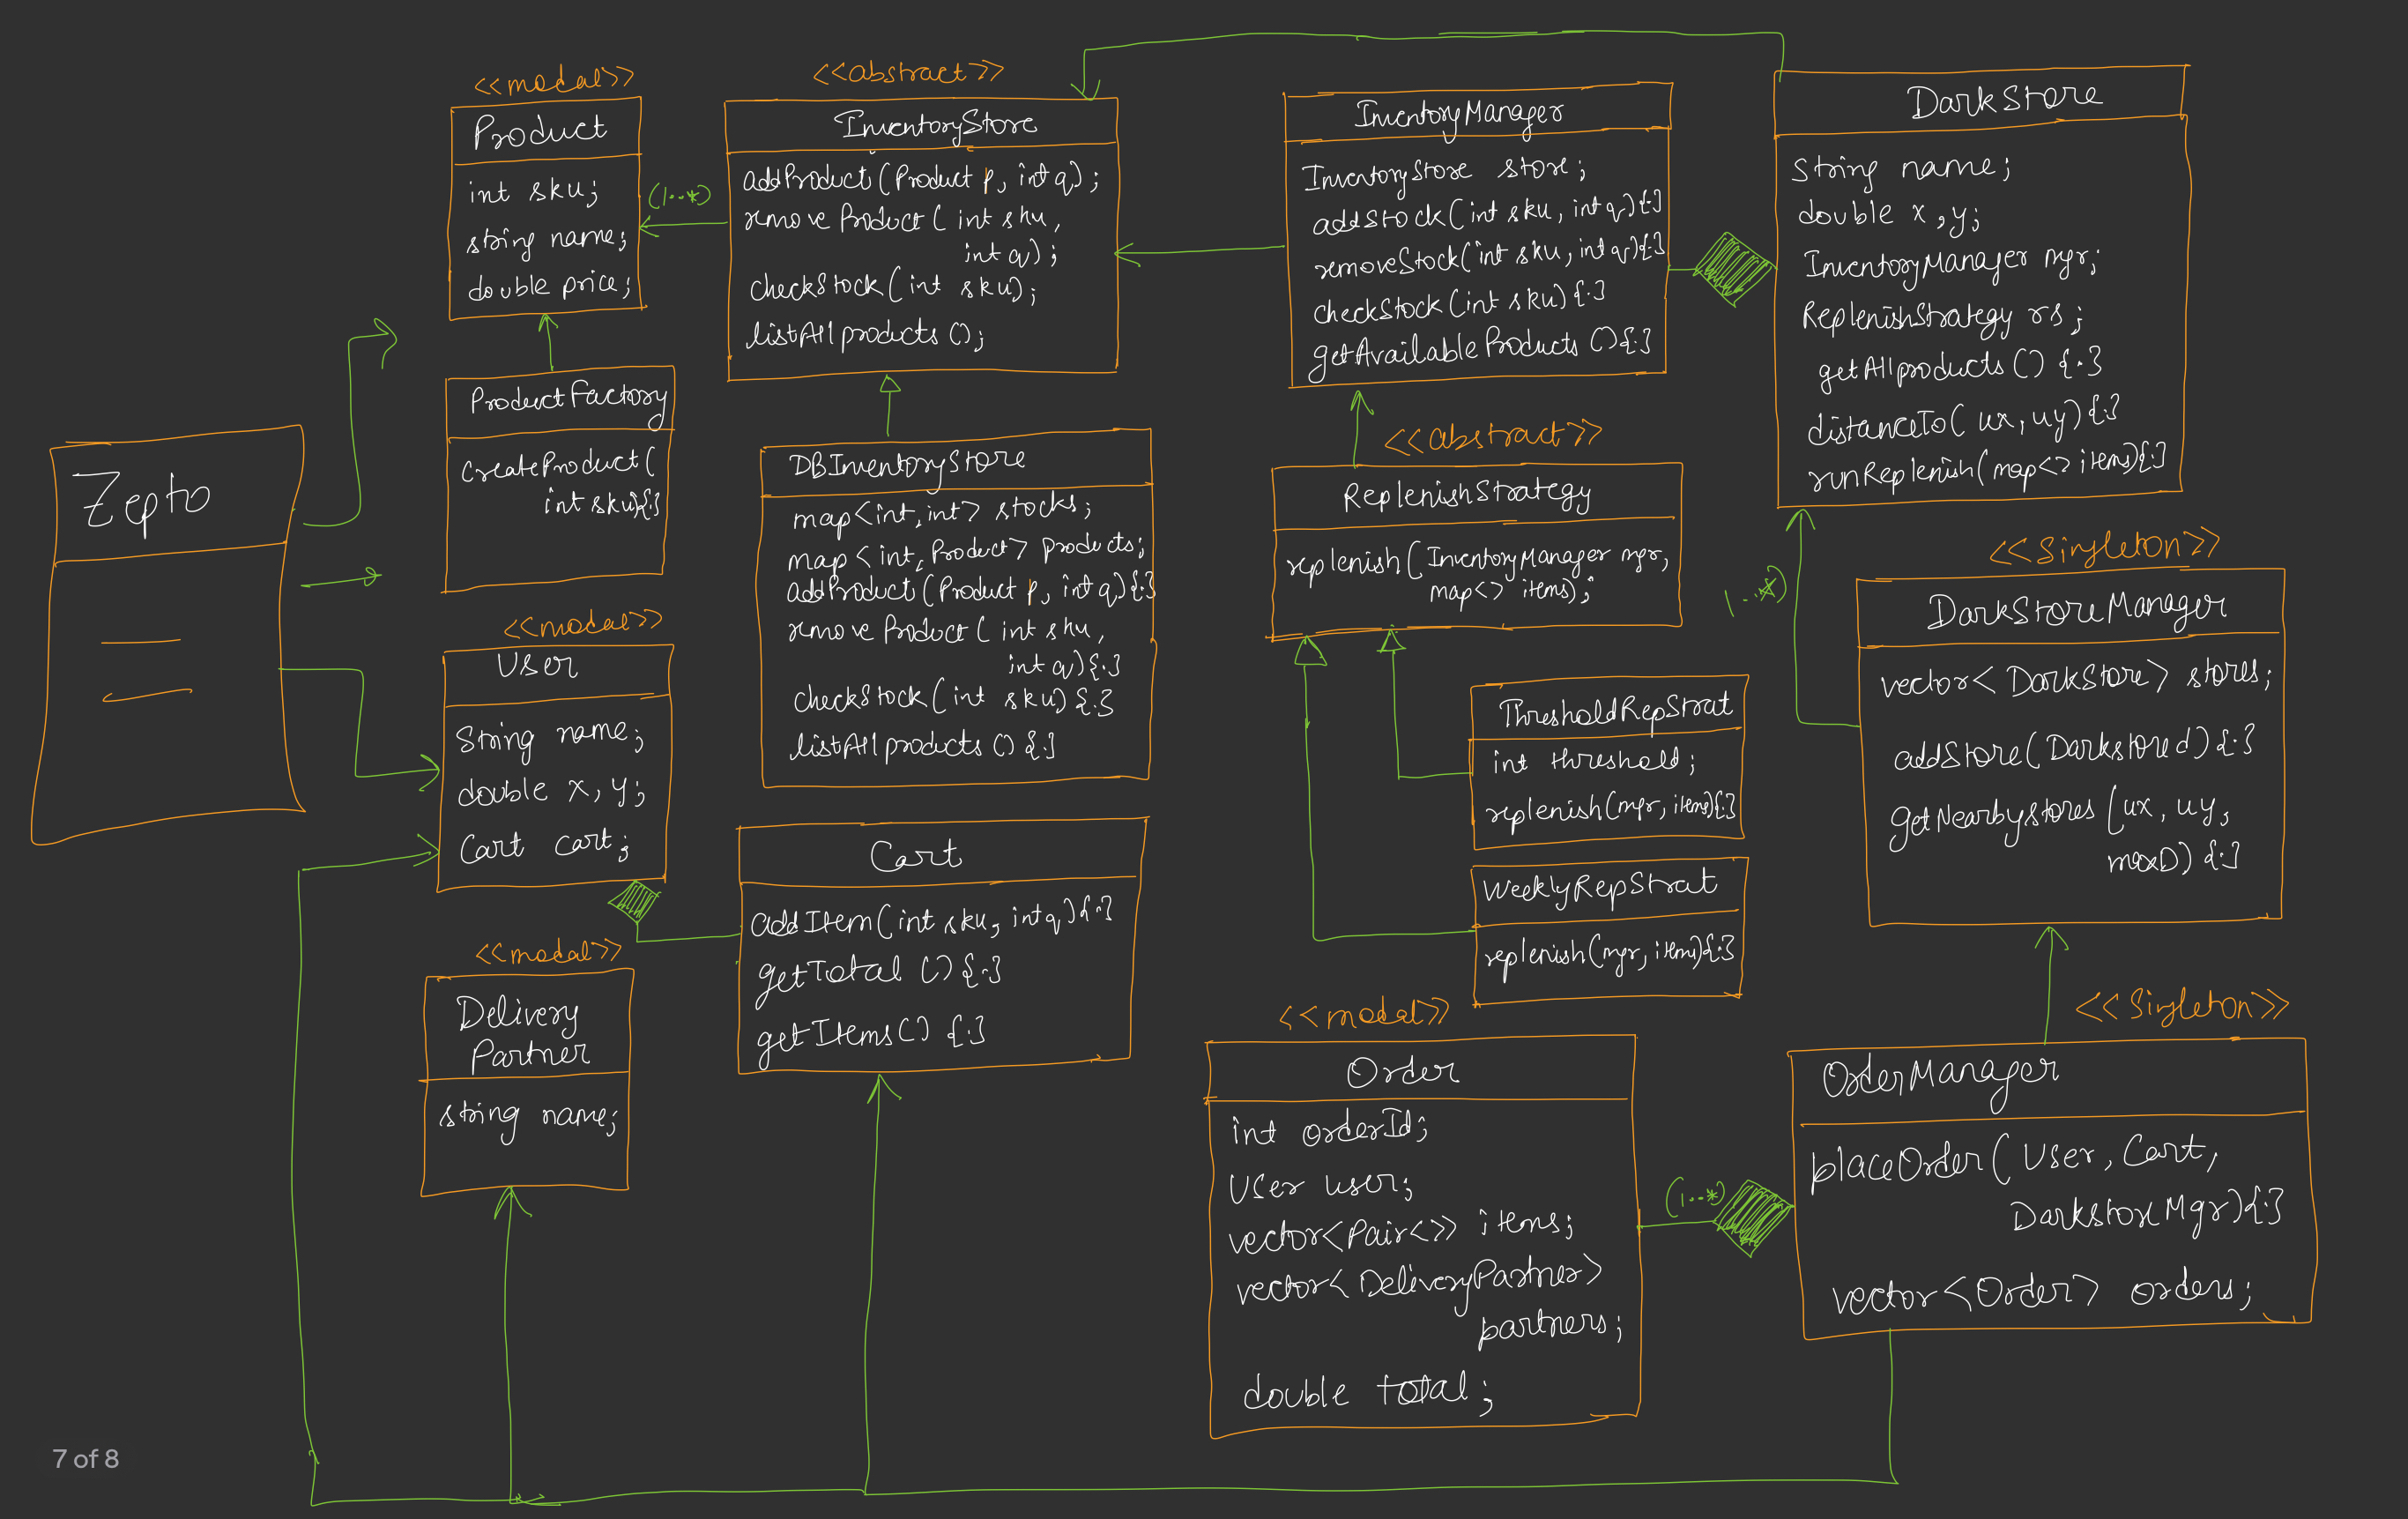 Zepto
<<modal>>
Product
int sku;
string name;
double price;
(1..*)
ProductFactory
createProduct(
int sku){:}
<<modal>>
User
String name;
double x, y;
Cart cart;
<<modal>>
Delivery
Partner
string name;
<<abstract>>
InventoryStore
addProduct(Product p, int q);
removeProduct(int sku,
int q);
checkStock(int sku);
listAllproducts();
DBInventoryStore
map<int,int> stocks;
map<int,Product> products;
addProduct(Product p, int q){:}
removeProduct(int sku,
int q){:}
checkStock(int sku){:}
listAllproducts(){:}
Cart
addItem(int sku, int q){:}
getTotal(){:}
getItems(){:}
InventoryManager
InventoryStore store;
addStock(int sku, int q){:}
removeStock(int sku, int q){:}
checkStock(int sku){:}
getAvailableProducts(){:}
<<abstract>>
ReplenishStrategy
replenish(InventoryManager mgr,
map<> items);
ThresholdRepStrat
int threshold;
replenish(mgr, items){:}
WeeklyRepStrat
replenish(mgr, item){:}
<<modal>>
Order
int orderId;
User user;
vector<Pair<>> items;
vector<DeliveryPartner>
partners;
double total;
DarkStore
String name;
double x, y;
InventoryManager mgr;
ReplenishStrategy rs;
getAllproducts(){:}
distanceTo(ux, uy){:}
runReplenish(map<> items){:}
1..*)
<<Singleton>>
DarkStoreManager
vector<DarkStore> stores;
addStore(Darkstore d){:}
getNearbystores(ux, uy,
maxD){:}
<<Singleton>>
OrderManager
placeOrder(User, Cart,
DarkstoreMgr){:}
vector<Order> orders;
(1..*)
7 of 8